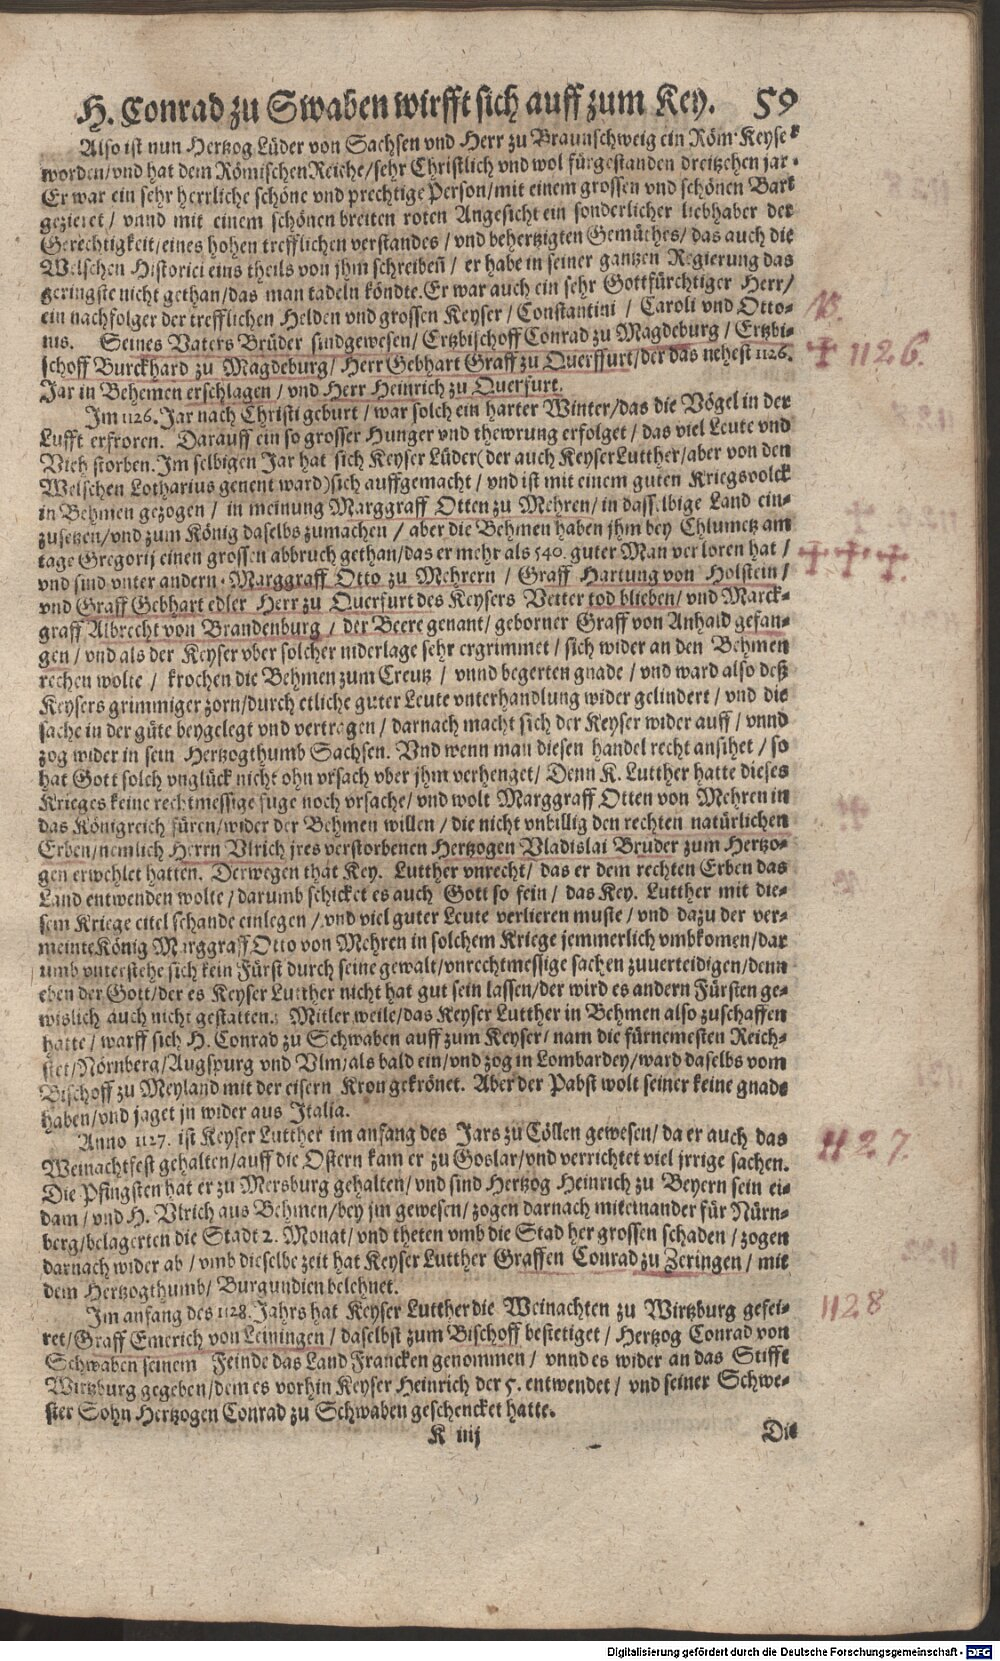 H. Conrad zu Swaben wirfft sich auff zum Key. 59
Also ist nun Hertzog Lüder von Sachsen vnd Herr zu Braunschweig ein Röm. Keyser
worden/vnd hat dem Römischen Reiche/sehr Christlich vnd wol fürgestanden dreitzehen jar.
Er war ein sehr herrliche schöne vnd prechtige Person/mit einem grossen vnd schönen Bart
gezieret/ vnnd mit einem schönen breiten roten Angesicht ein sonderlicher liebhaber der
Gerechtigkeit/eines hohen trefflichen verstandes/ vnd behertzigten Gemüthes/ das auch die
Welschen Historici eins theils von jhm schreibeñ/ er habe in seiner gantzen Regierung das
geringste nicht gethan/das man tadeln köndte. Er war auch ein sehr Gottfürchtiger Herr/
ein nachfolger der trefflichen Helden vnd grossen Keyser/ Constantini/ Caroli vnd Otto- B.
nis. Seines Vaters Brüder sindgewesen/ Ertzbischoff Conrad zu Magdeburg/ Ertzbi-
schoff Burckhard zu Magdeburg/ Herr Gebhart Graff zu Querffurt/der das nehest 1126. + 1126.
Jar in Behemen erschlagen/ vnd Herr Heinrich zu Querfurt.
Im 1126. Jar nach Christi geburt/ war solch ein harter Winter/das die Vögel in der
Lufft erfroren. Darauff ein so grosser Hunger vnd thewrung erfolget/ das viel Leute vnd
Vieh storben. Im selbigen Jar hat sich Keyser Lüder(der auch Keyser Lutther/aber von den
Welschen Lotharius genent ward)sich auffgemacht/ vnd ist mit einem guten Kriegsvolck
in Behmen gezogen/ in meinung Marggraff Otten zu Mehren/ in dasselbige Land ein-
zusetzen/vnd zum König daselbs zumachen/ aber die Behmen haben jhm bey Chlumetz am
tage Gregorij einen grossen abbruch gethan/das er mehr als 540. guter Man verloren hat/ + + +.
vnd sind vnter andern. Marggraff Otto zu Mehrern/ Graff Hartung von Holstein/
vnd Graff Gebhart edler Herr zu Querfurt des Keysers Vetter tod blieben/ vnd Marck-
graff Albrecht von Brandenburg/ der Beere genant/ geborner Graff von Anhald gefan-
gen/ vnd als der Keyser vber solcher niderlage sehr ergrimmet/ sich wider an den Behmen
rechen wolte/ krochen die Behmen zum Creutz/ vnnd begerten gnade/ vnd ward also deß
Keysers grimmiger zorn/durch etliche guter Leute vnterhandlung wider gelindert/ vnd die
sache in der güte beygelegt vnd vertragen/ darnach macht sich der Keyser wider auff/ vnnd
zog wider in sein Hertzogthumb Sachsen. Vnd wenn man diesen handel recht ansihet/ so
hat Gott solch vnglück nicht ohn vrsach vber jhm verhenget/ Denn K. Lutther hatte dieses
Krieges keine rechtmessige fuge noch vrsache/ vnd wolt Marggraff Otten von Mehren in
das Königreich füren/wider der Behmen willen/ die nicht vnbillig den rechten natürlichen
Erben/nemlich Herrn Vlrich jres verstorbenen Hertzogen Vladislai Bruder zum Hertzo-
gen erwehlet hatten. Derwegen that Key. Lutther vnrecht/ das er dem rechten Erben das
Land entwenden wolte/ darumb schicket es auch Gott so fein/ das Key. Lutther mit die-
sem Kriege eitel schande einlegen/ vnd viel guter Leute verlieren muste/ vnd dazu der ver-
meinte König Marggraff Otto von Mehren in solchem Kriege jemmerlich vmbkomen/dar
umb vnterstehe sich kein Fürst durch seine gewalt/vnrechtmessige sachen zuuerteidigen/denn
eben der Gott/der es Keyser Lutther nicht hat gut sein lassen/der wird es andern Fürsten ge-
wislich auch nicht gestatten. Mitler weile/das Keyser Lutther in Behmen also zuschaffen
hatte/ warff sich H. Conrad zu Schwaben auff zum Keyser/ nam die fürnemesten Reich-
stet/Nörnberg/Augspurg vnd Vlm/als bald ein/vnd zog in Lombardey/ward daselbs vom
Bischoff zu Meyland mit der eisern Kron gekrönet. Aber der Pabst wolt seiner keine gnade
haben/vnd jaget jn wider aus Italia.
Anno 1127. ist Keyser Lutther im anfang des Jars zu Cöllen gewesen/ da er auch das 1127.
Weinachtfest gehalten/auff die Ostern kam er zu Goslar/vnd verrichtet viel jrrige sachen.
Die Pfingsten hat er zu Mersburg gehalten/ vnd sind Hertzog Heinrich zu Beyern sein ei-
dam/ vnd H. Vlrich aus Behmen/bey jm gewesen/ zogen darnach miteinander für Nürn-
berg/belagerten die Stadt 2. Monat/ vnd theten vmb die Stad her grossen schaden/ zogen
darnach wider ab/ vmb dieselbe zeit hat Keyser Lutther Graffen Conrad zu Zeringen/ mit
dem Hertzogthumb/ Burgundien belehnet.
Im anfang des 1128. Jahrs hat Keyser Lutther die Weinachten zu Wirtzburg gefei- 1128
ret/Graff Emerich von Leiningen/ daselbst zum Bischoff bestetiget/ Hertzog Conrad von
Schwaben seinem Feinde das Land Francken genommen/ vnnd es wider an das Stifft
Wirtzburg gegeben/dem es vorhin Keyser Heinrich der 5. entwendet/ vnd seiner Schwe-
ster Sohn Hertzogen Conrad zu Schwaben geschencket hatte.
K iiij Die
Digitalisierung gefördert durch die Deutsche Forschungsgemeinschaft - DFG